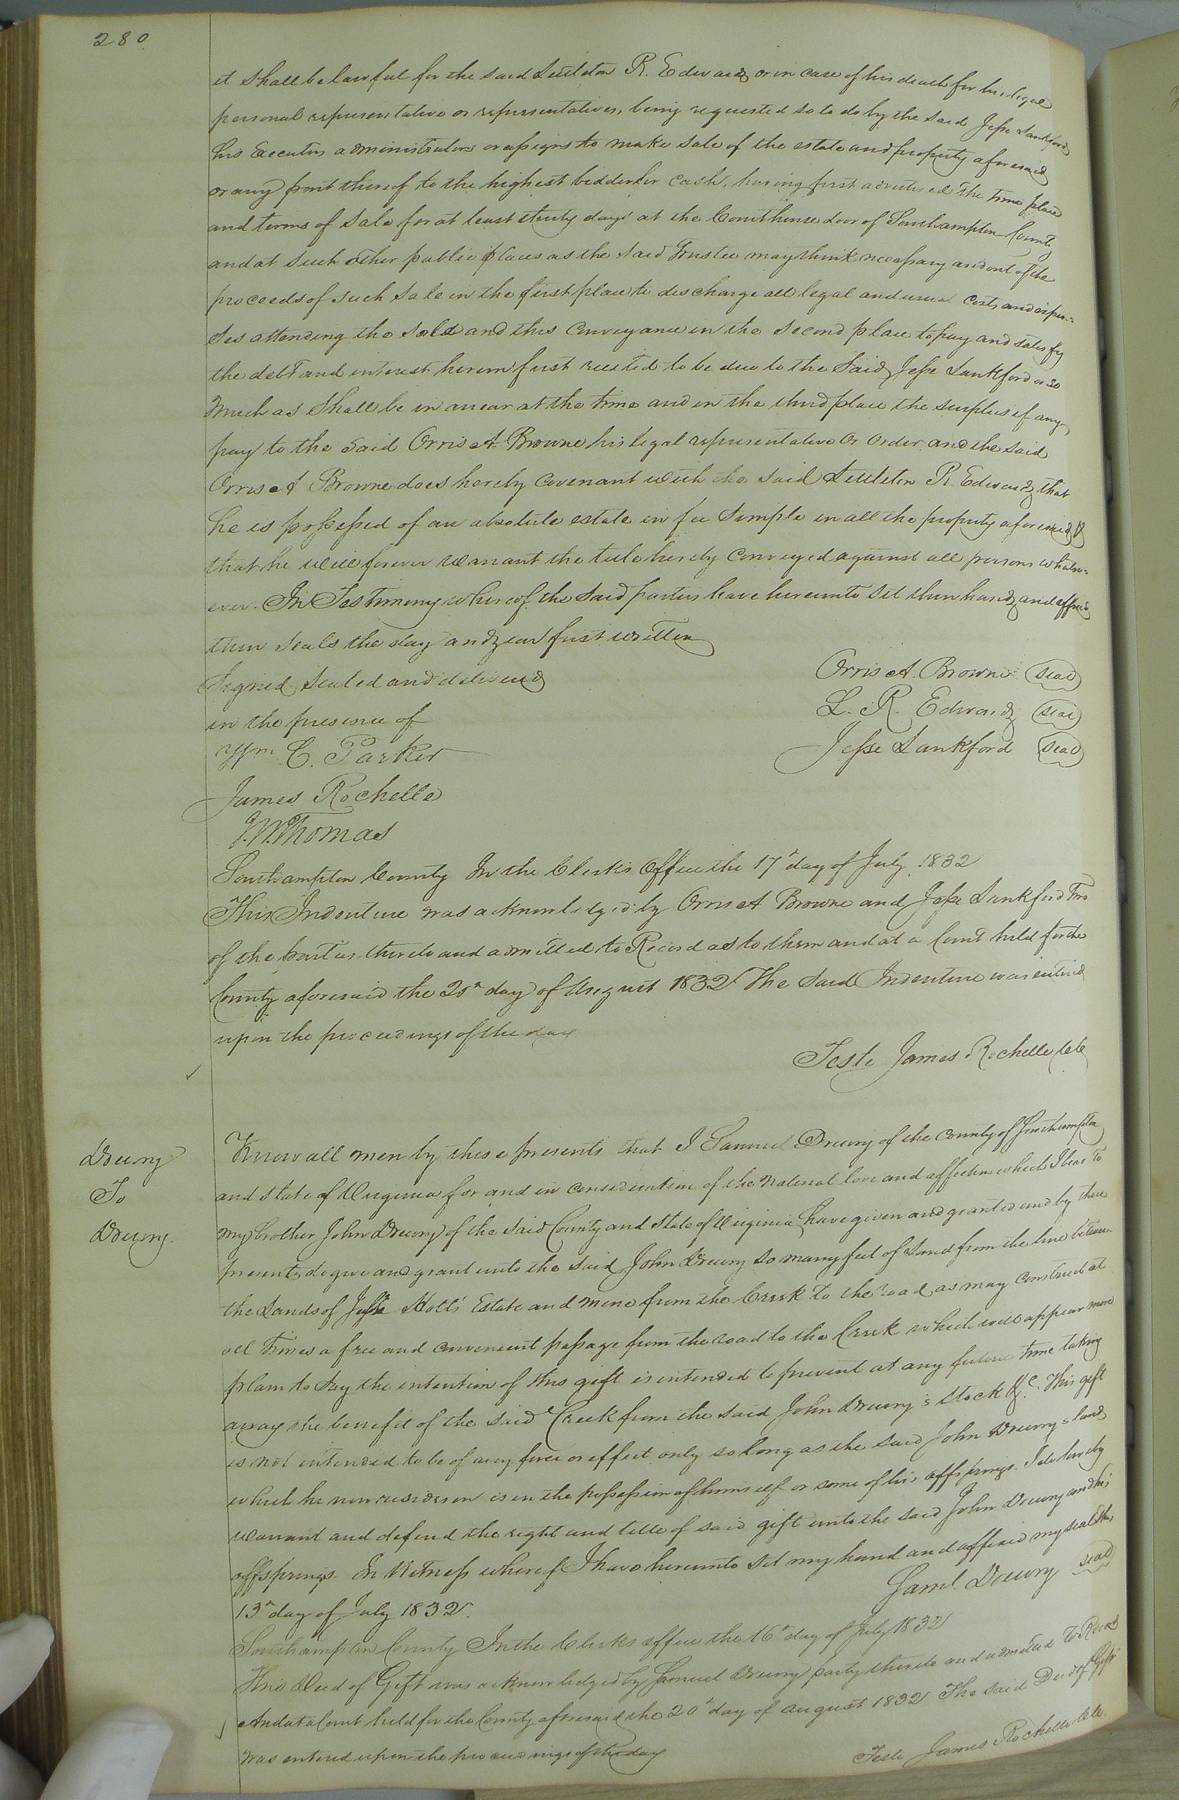 280
it shall be lawful for the said Littleton R. Edwards or in case of his death for his legal
personal representative or representatives, being requested so to do by the said Jesse Lankford
his Executors administrators or assigns to make sale of the estate and property aforesaid
or any part thereof to the highest bidder for cash, having first advertised the time place
and terms of sale for at least thirty days at the Courthouse door of Southampton County
and at such other public places as the said Trustee may think necessary and out of the
proceeds of such sale in the first place to discharge all legal and usual costs and expen-
ses attending the sale and this conveyance in the second place to pay and satisfy
the debt and interest herein first recited to be due to the said Jesse Lankford or so
much as shall be in arrear at the time and in the third place the surplus if any
pay to the said Orris A. Browne his legal representative or order and the said
Orris A Browne does hereby covenant with the said Littleton R. Edwards that
he is possessed of an absolute estate in fee simple in all the property aforesaid &
that he will forever warrant the title hereby conveyed against all persons whatso-
ever. In Testimony whereof the said parties have hereunto set their hands and affixed
their seals the day and year first written
Signed Sealed and delivered
in the presence of
Wm C. Parker
James Rochelle
J. W. Thomas
Orris A. Browne seal
L. R. Edwards seal
Jesse Lankford seal
Southampton County In the Clerks Office the 17th day of July 1832
This Indenture was acknowledged by Orris A Browne and Jesse Lankford two
of the parties thereto and admitted to Record as to them and at a Court held for the
County aforesaid the 20th day of August 1832 The said Indenture was entered
upon the proceedings of the day
Teste James Rochelle clk
Drewry
To
Drewry.
Know all men by these presents that I Samuel Drewry of the County of Southampton
and State of Virginia for and in consideration of the natural love and affection which I bear to
my brother John Drewry of the said County and State of Virginia have given and granted and by these
presents do give and grant unto the said John Drewry so many feet of Land from the line between
the Lands of Jesse Holt's Estate and mine from the Creek to the road as may construct at
all times a free and convenient passage from the road to the Creek which will appear more
plain to say the intention of this gift is intended to prevent at any future time taking
away the benefit of the said Creek from the said John Drewry's Stock &c. This gift
is not intended to be of any force or effect only so long as the said John Drewry's land
which he now resides on is in the possession of himself or some of his offsprings. I do hereby
warrant and defend the right and title of said gift unto the said John Drewry and his
offsprings. In Witness whereof I have hereunto set my hand and affixed my seal this
13th day of July 1832.
Saml. Drewry seal
Southampton County In the Clerks office the 16th day of July 1832
This Deed of Gift was acknowledged by Samuel Drewry party thereto and admitted to Record
And at a Court held for the County aforesaid the 20th day of August 1832 The said Deed of Gift
was entered upon the proceedings of the day
Teste James Rochelle clk.